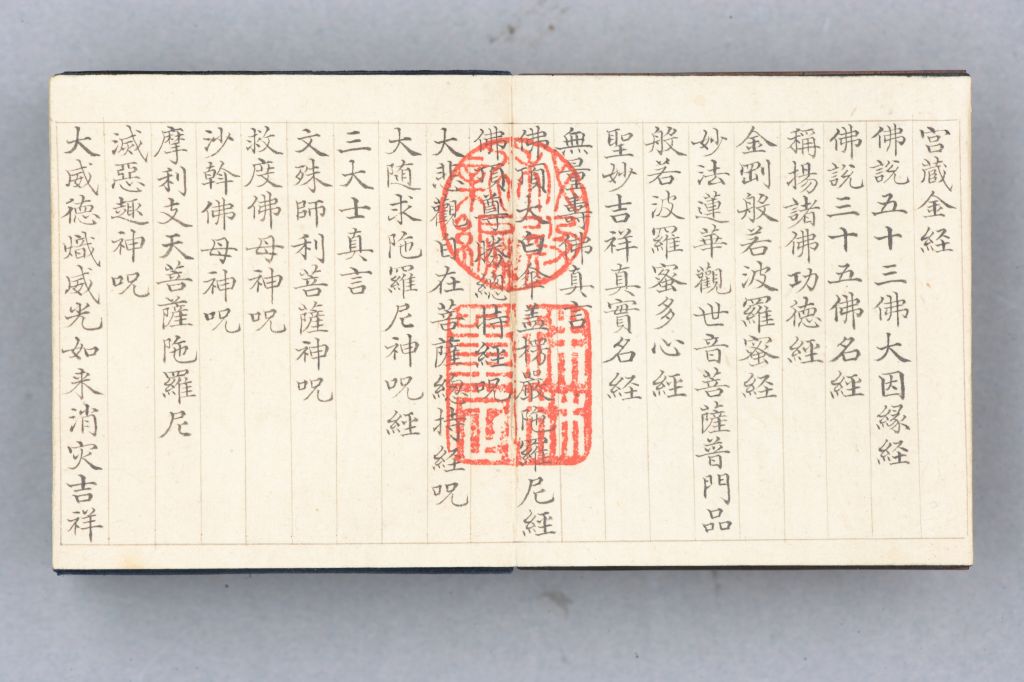 宮蔵金経
佛說五十三佛大因縁経
佛說三十五佛名經
稱揚諸佛功德經
金剛般若波羅蜜経
妙法蓮華觀世音菩薩普門品
般若波羅蜜多心經
聖妙吉祥真實名経
無量壽佛真言
佛頂大白傘盖楞嚴陁羅尼經
佛頂尊勝總持經呪
大悲觀自在菩薩總持經呪
大随求陁羅尼神呪經
三大士真言
文殊師利菩薩神呪
救度佛母神呪
沙斡佛母神呪
摩利支天菩薩陁羅尼
滅惡趣神呪
大威德熾威光如来消灾吉祥
秘殿
新編
珠林
重定